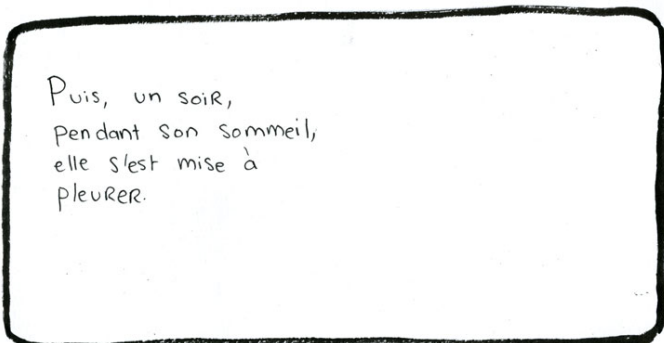 Puis, un soir,
pendant son sommeil,
elle s'est mise à
pleurer.